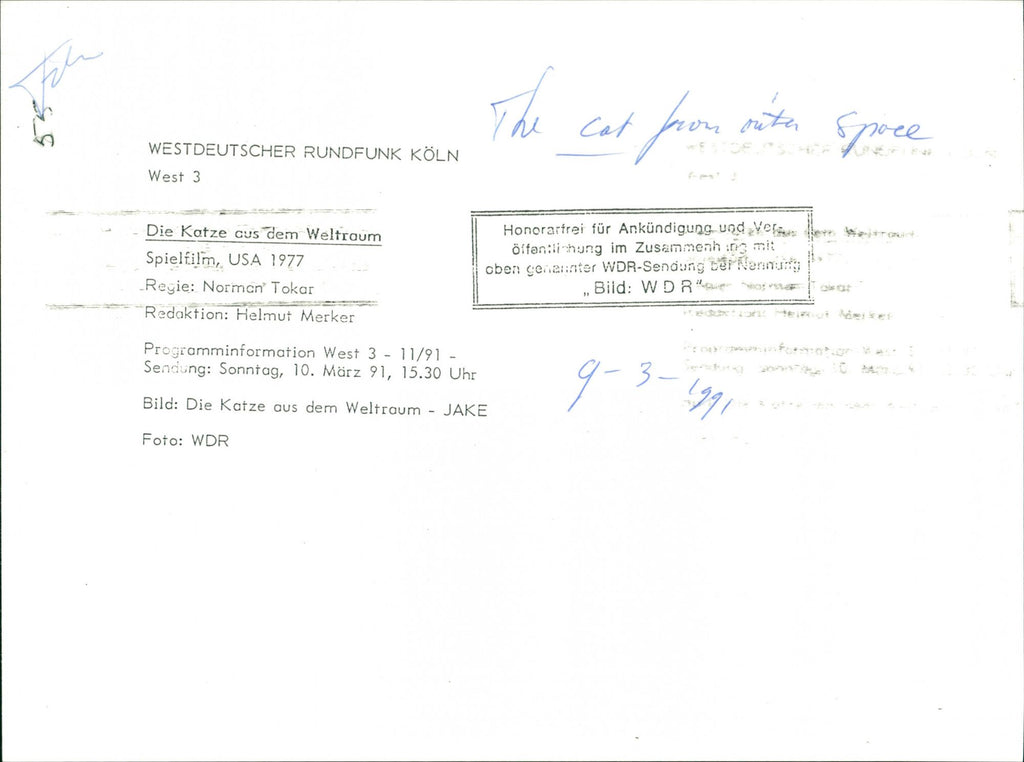 The cat from outer space
55
WESTDEUTSCHER RUNDFUNK KÖLN
West 3
Die Katze aus dem Weltraum
Spielfilm, USA 1977
Regie: Norman Tokar
Redaktion: Helmut Merker
Programminformation West 3 - 11/91 -
Sendung: Sonntag, 10. März 91, 15.30 Uhr
Bild: Die Katze aus dem Weltraum - JAKE
Foto: WDR
Honorarfrei für Ankündigung und Ver-
öffentlichung im Zusammenhang mit
oben genannter WDR-Sendung bei Nennung
„Bild: WDR"
9-3-1991